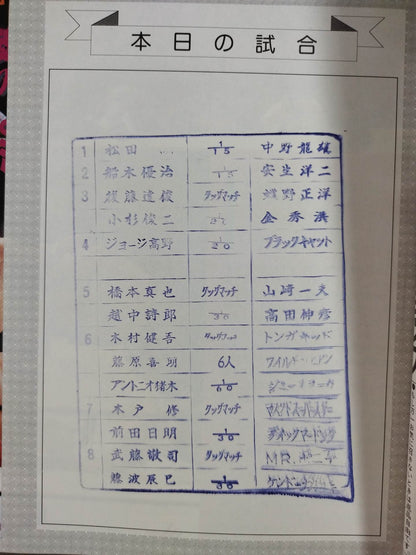 本日の試合
1 松田 1/15 中野龍雄
2 船木優治 1/15 安生洋二
3 後藤達俊 タッグマッチ 蝶野正洋
小杉俊二 金秀洪
4 ジョージ高野 1/20 ブラックキャット
5 橋本真也 タッグマッチ 山崎一夫
越中詩郎 1/30 高田伸彦
6 木村健吾 タッグマッチ トンガキッド
藤原喜明 6人
アントニオ猪木 1/60
7 木戸修 タッグマッチ マスクドスーパースター
前田日明 1/30 ディックマードック
8 武藤敬司 タッグマッチ MR.
藤波辰巳 1/30 ケンドー